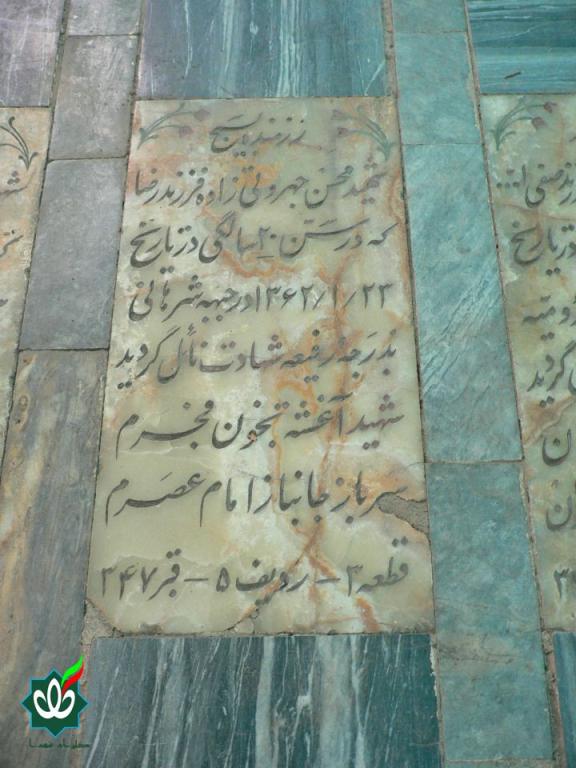 رزمنده بسیج
شهید محسن جهروتی زاده فرزند رضا
که در سن ۲۰ سالگی در تاریخ
۱۳۶۲/۱/۲۳ در جبهه شرهانی
بدرجه رفیعه شهادت نائل گردید
شهید آغشته بخون مجرم
سرباز جانباز امام عصرم
قطعه ۳ - ردیف ۵ - قبر ۳۴۷
در تاریخ
گردید